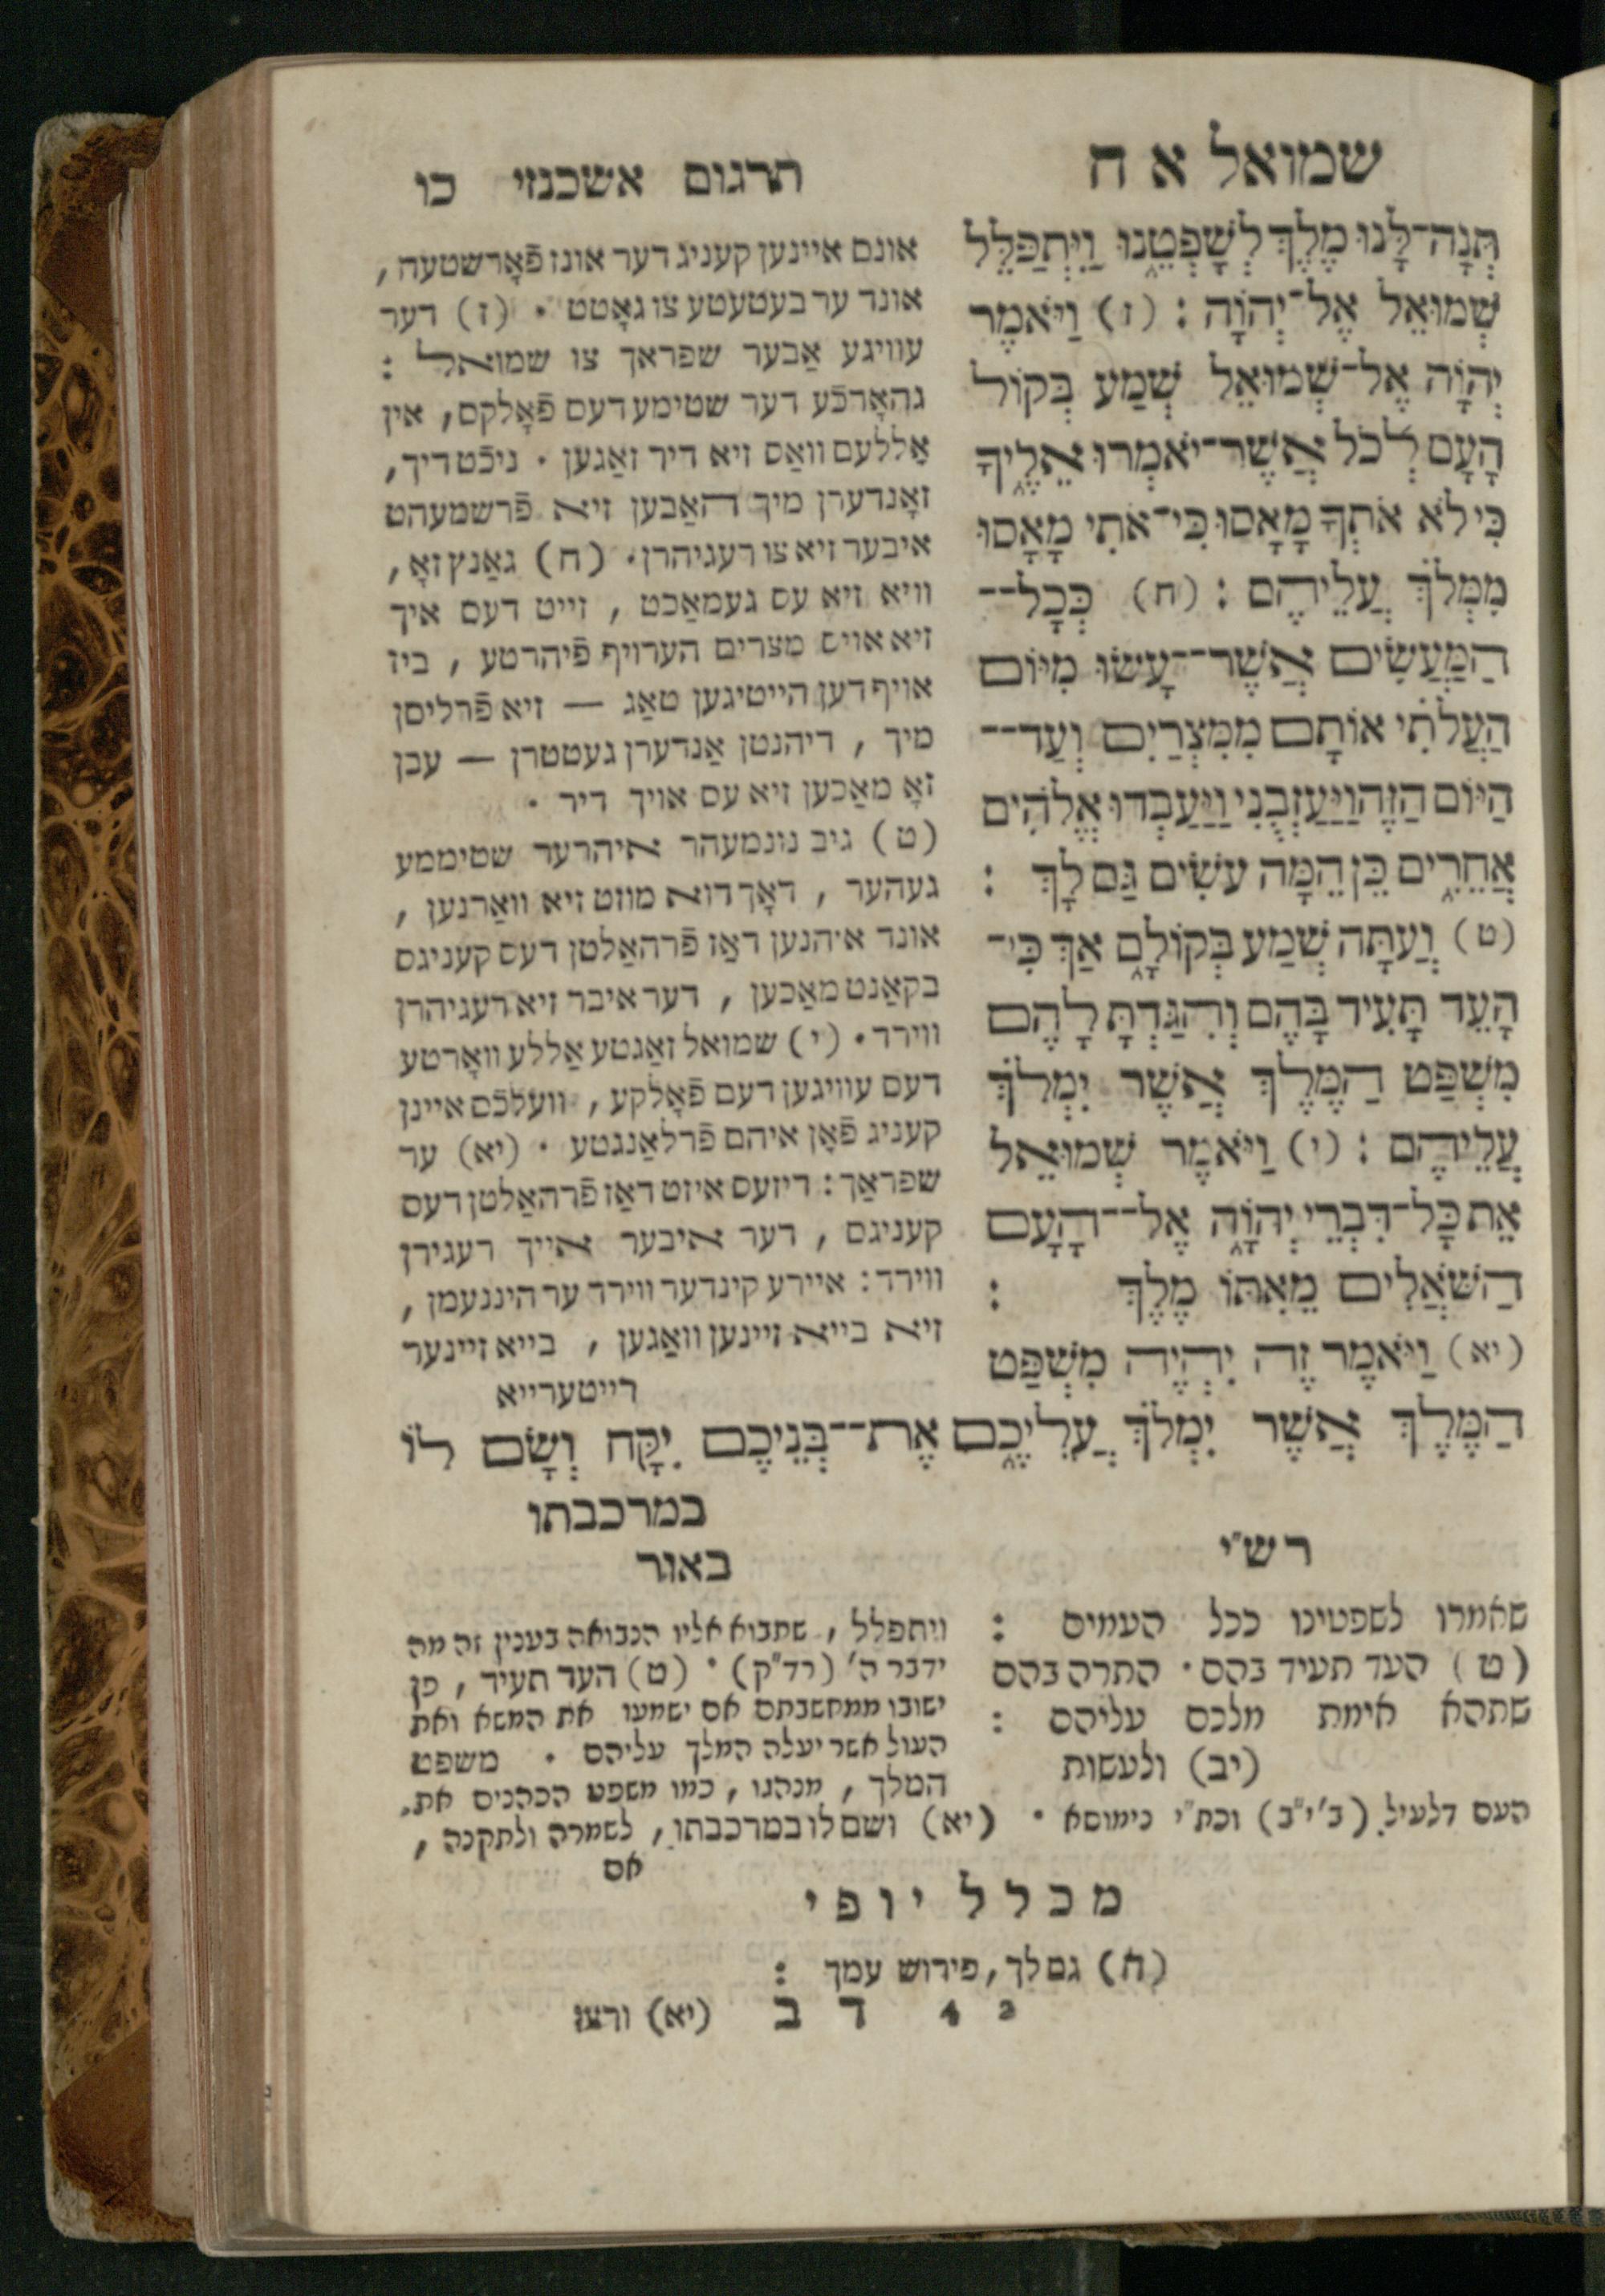 שמואל א ח
תְּנָה־לָּנוּ מֶלֶךְ לְשָׁפְטֵנוּ וַיִּתְפַּלֵּל
שְׁמוּאֵל אֶל־יְהוָֹה : (ז) וַיֹּאמֶר
יְהוָֹה אֶל־שְׁמוּאֵל שְׁמַע בְּקוֹל
הָעָם לְכֹל אֲשֶׁר־יֹאמְרוּ אֵלֶיךָ
כִּי לֹא אֹתְךָ מָאָסוּ כִּי־אֹתִי מָאֲסוּ
מִמְּלֹךְ עֲלֵיהֶם : (ח) כְּכָל־־
הַמַּעֲשִׂים אֲשֶׁר־־עָשׂוּ מִיּוֹם
הַעֲלֹתִי אוֹתָם מִמִּצְרַיִם וְעַד־־
הַיּוֹם הַזֶּה וַיַּעַזְבֻנִי וַיַּעַבְדוּ אֱלֹהִים
אֲחֵרִים כֵּן הֵמָּה עֹשִׂים גַּם לָךְ :
(ט) וְעַתָּה שְׁמַע בְּקוֹלָם אַךְ כִּי־
הָעֵד תָּעִיד בָּהֶם וְהִגַּדְתָּ לָהֶם
מִשְׁפַּט הַמֶּלֶךְ אֲשֶׁר יִמְלֹךְ
עֲלֵיהֶם : (י) וַיֹּאמֶר שְׁמוּאֵל
אֵת כָּל־דִּבְרֵי יְהוָֹה אֶל־־הָעָם
הַשֹּׁאֲלִים מֵאִתּוֹ מֶלֶךְ :
(יא) וַיֹּאמֶר זֶה יִהְיֶה מִשְׁפַּט
תרגום אשכנזי כו
אונס איינען קעניג דער אונז פֿאָרשטעה,
אונד ער בעטעטע צו גאָטט . (ז) דער
עוויגע אַבער שפראך צו שמואל :
גהאָרכֿע דער שטימע דעס פֿאָלקס, אין
אָללעם וואַס זיא דיר זאַגען . ניכֿט דיך,
זאָנדערן מיך האַבען זיא פֿרשמעהט
איבער זיא צו רעגיהרן. (ח) גאַנץ זאָ,
וויא זיא עס געמאַכט , זייט דעם איך
זיא אויס מצרים הערויף פֿיהרטע , ביז
אויף דען הייטיגען טאַג — זיא פֿרליסן
מיך , דיהנטן אַנדערן געטטרן — עבן
זאָ מאַכען זיא עס אויך דיר .
(ט) גיב נונמעהר איהרער שטיממע
געהער , דאָך דוא מוזט זיא וואַרנען ,
אונד איהנען דאַז פֿרהאַלטן דעס קעניגס
בקאַנט מאַכען , דער איבר זיא רעגיהרן
ווירד. (י) שמואל זאַגטע אַללע וואָרטע
דעס עוויגען דעם פֿאָלקע, וועלכֿס איינן
קעניג פֿאָן איהם פֿרלאַנגטע . (יא) ער
שפראַך: דיזעס איזט דאַז פֿרהאַלטן דעס
קעניגס , דער איבער אייך רעגירן
ווירד: איירע קינדער ווירד ער היננעמן ,
זיא בייא זיינען וואַגען , בייא זיינער
רייטערייא
הַמֶּלֶךְ אֲשֶׁר יִמְלֹךְ עֲלֵיכֶם אֶת־־בְּנֵיכֶם יִקָּח וְשָׂם לוֹ
במרכבתו
רש"י
שאמרו לשפטינו ככל העמים :
(ט) העד תעיד בהם. התרה בהם
שתהא אימת מלכם עליהם :
(יב) ולעשות
באור
ויתפלל , שתבוא אליו הנבואה בענין זה מה
ידבר ה' (רד"ק) . (ט) העד תעיד , פן
ישובו ממחשבתם אם ישמעו את המשא ואת
העול אשר יעלה המלך עליהם . משפט
המלך , מנהגו, כמו משפט הכהנים את
העם דלעיל (ב' י"ב) וכת"י נימוסא . (יא) ושם לו במרכבתו, לשמרה ולתקנה ,
אם
מכלל יופי
(ח) גם לך, פירוש עמך :
2 4 ד ב (יא) ורצו